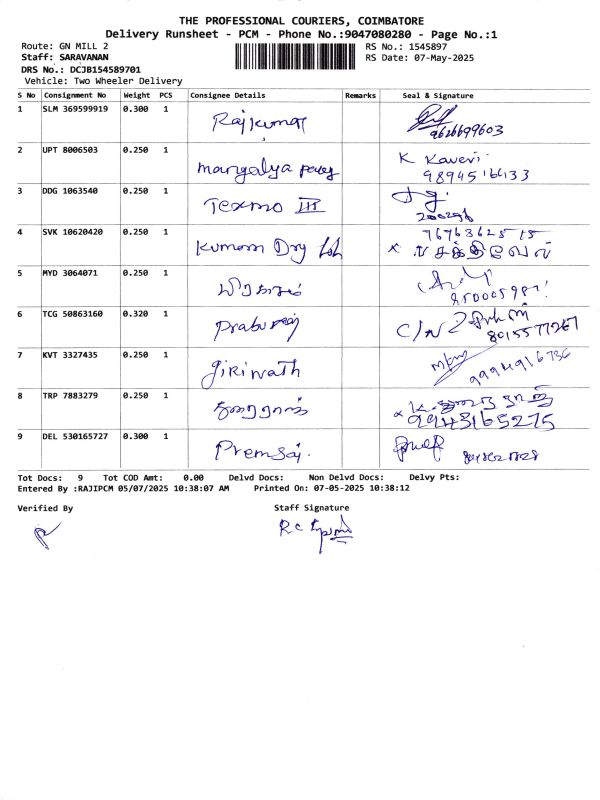 THE PROFESSIONAL COURIERS, COIMBATORE
Delivery Runsheet - PCM - Phone No.:9047080280 - Page No.:1
Route: GN MILL 2 RS No.: 1545897
Staff: SARAVANAN RS Date: 07-May-2025
DRS No.: DCJB154589701
Vehicle: Two Wheeler Delivery
S No Consignment No Weight PCS Consignee Details Remarks Seal & Signature
1 SLM 369599919 0.300 1 Rajkumar 9626699603
2 UPT 8006503 0.250 1 mangalya K Kaveri
3 DDG 1063540 0.250 1 Texmo III
4 SVK 10620420 0.250 1 Kumaran Dry சக்திவேல்
5 MYD 3064071 0.250 1
6 TCG 50863160 0.320 1 Praburaj C/N 8015577267
7 KVT 3327435 0.250 1 Girinath 9994916736
8 TRP 7883279 0.250 1 நாகராஜ் 9943165275
9 DEL 530165727 0.300 1 Premraj.
Tot Docs: 9 Tot COD Amt: 0.00 Delvd Docs: Non Delvd Docs: Delvy Pts:
Entered By :RAJIPCM 05/07/2025 10:38:07 AM Printed On: 07-05-2025 10:38:12
Verified By Staff Signature